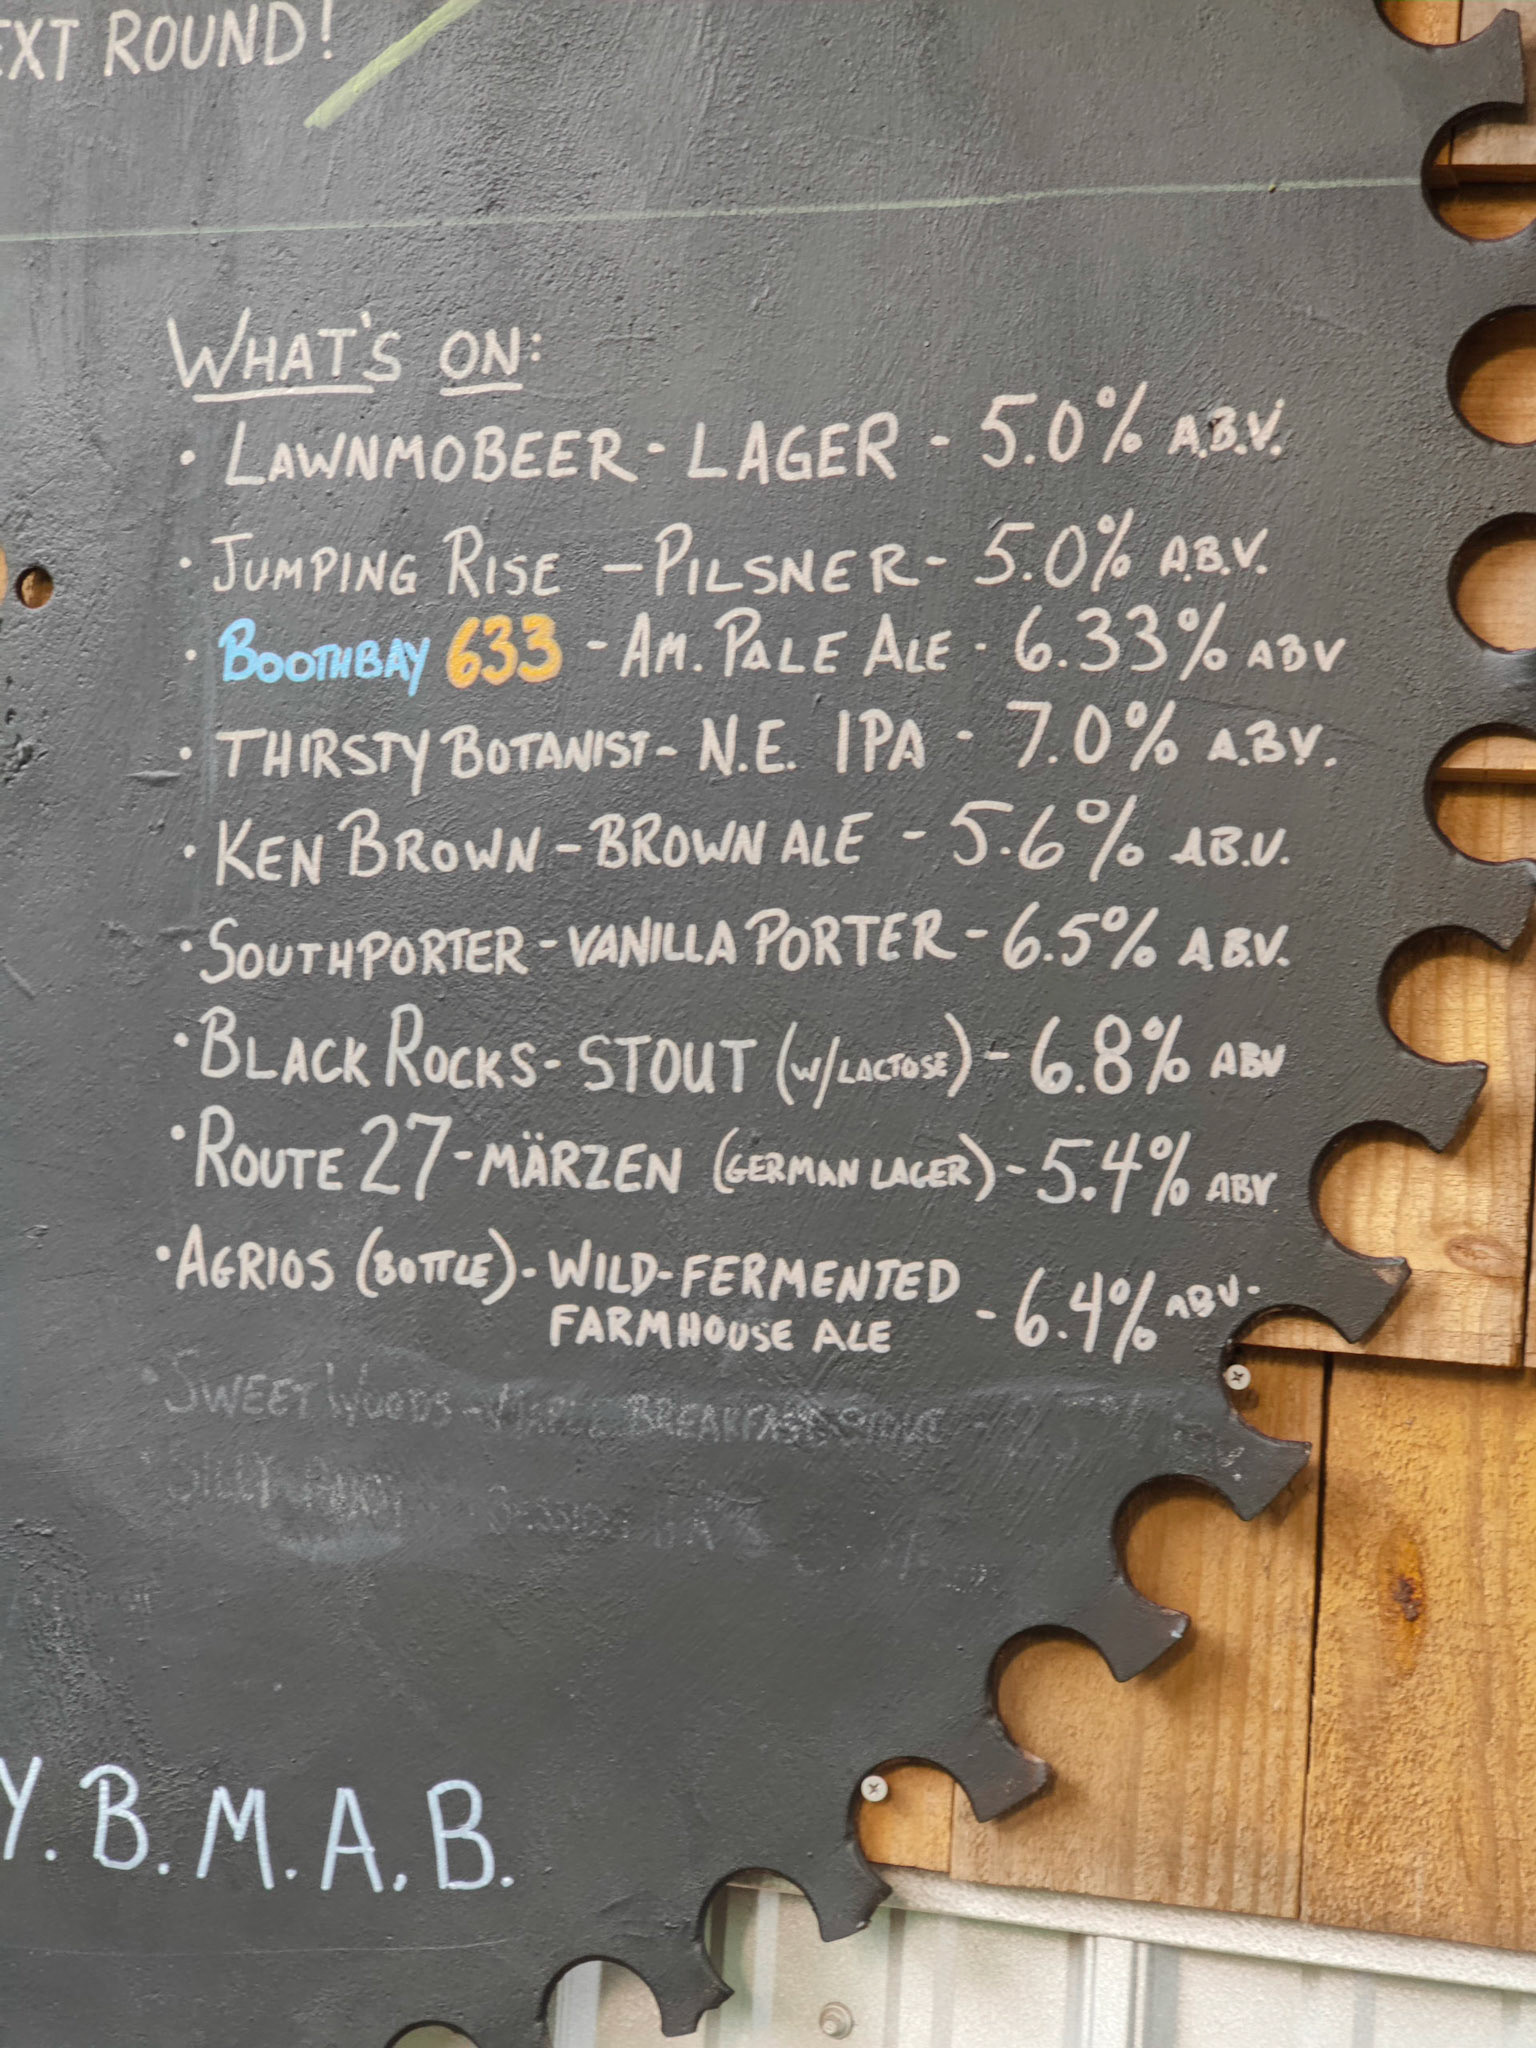 EXT ROUND!
WHAT'S ON:
• LAWNMOBEER - LAGER - 5.0% A.B.V.
• JUMPING RISE - PILSNER - 5.0% A.B.V.
• BOOTHBAY 633 - AM. PALE ALE - 6.33% ABV
• THIRSTY BOTANIST - N.E. IPA - 7.0% A.B.V.
• KEN BROWN - BROWN ALE - 5.6% A.B.V.
• SOUTHPORTER - VANILLA PORTER - 6.5% A.B.V.
• BLACK ROCKS - STOUT (W/LACTOSE) - 6.8% ABV
• ROUTE 27 - MÄRZEN (GERMAN LAGER) - 5.4% ABV
• AGRIOS (BOTTLE) - WILD-FERMENTED
FARMHOUSE ALE - 6.4% ABV.
• SWEET WOODS - MAPLE BREAKFAST STOUT
Y.B.M.A.B.